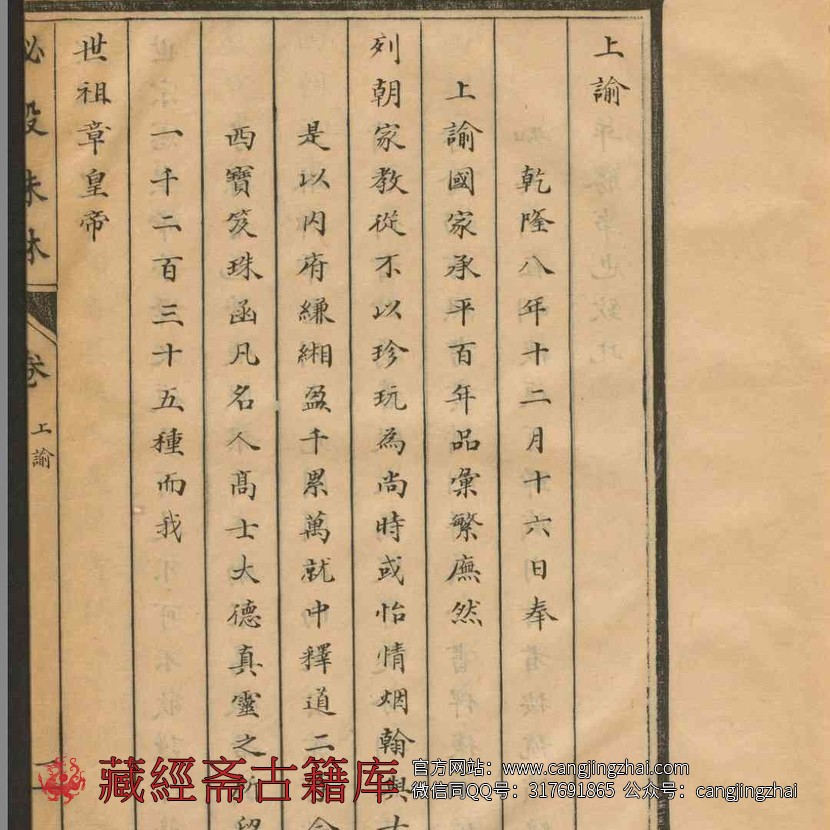 上諭
乾隆八年十二月十六日奉
上諭國家承平百年品彙繁廡然
列朝家教從不以珍玩為尚時或怡情烟翰與
是以内府縑緗盈千累萬就中釋道二
西寶笈珠函凡名人髙士大德真靈之所留
一千二百三十五種而我
世祖章皇帝
秘殿珠林
卷
上諭
藏經斋古籍库
官方网站：www.cangjingzhai.com
微信同QQ号：317691865 公众号：cangjingzhai